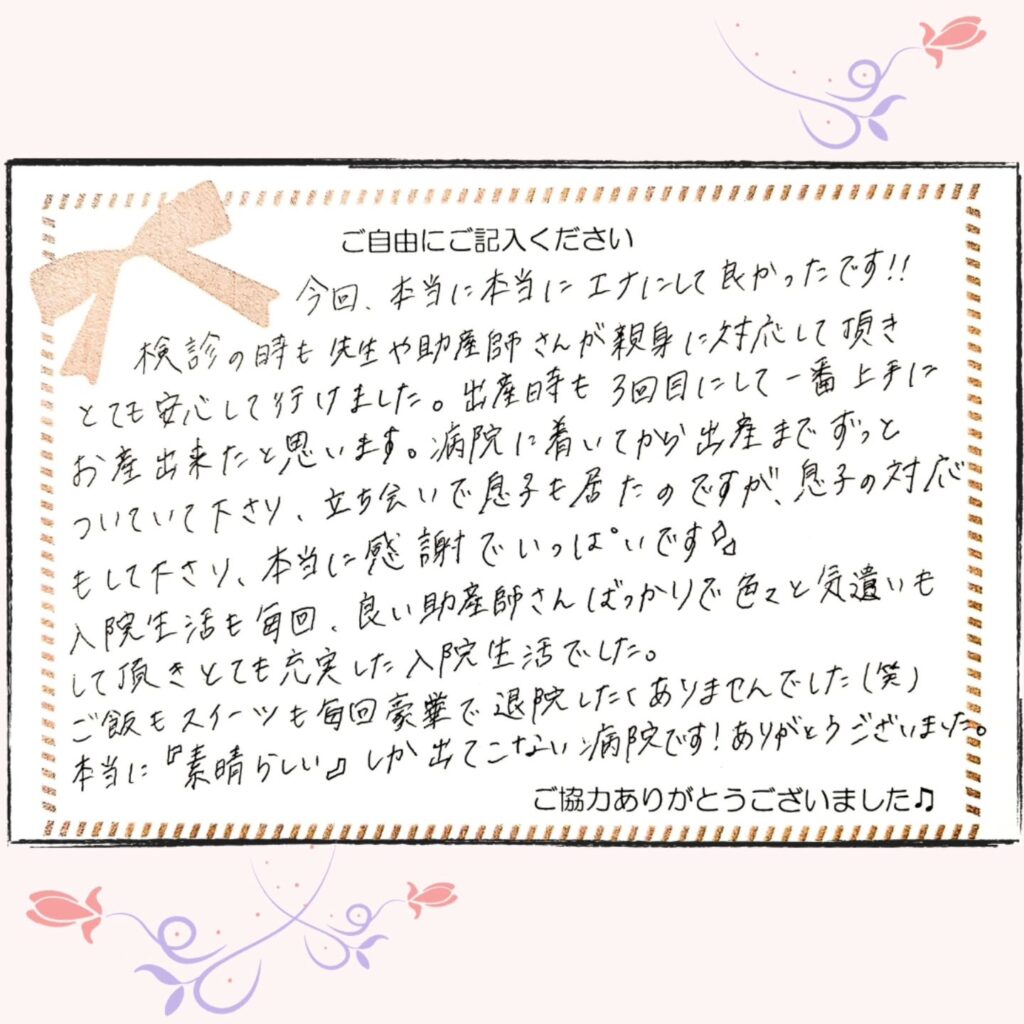 ご自由にご記入ください
今回、本当に本当にエナにして良かったです!!
検診の時も先生や助産師さんが親身に対応して頂き
とても安心して行けました。出産時も3回目にして一番上手に
お産出来たと思います。病院に着いてから出産までずっと
ついていて下さり、立ち会いで息子も居たのですが、息子の対応
もして下さり、本当に感謝でいっぱいです
入院生活も毎回、良い助産師さんばっかりで色々と気遣いも
して頂きとても充実した入院生活でした。
ご飯もスイーツも毎回豪華で退院したくありませんでした(笑)
本当に『素晴らしい』しか出てこない病院です!ありがとうございました。
ご協力ありがとうございました♫